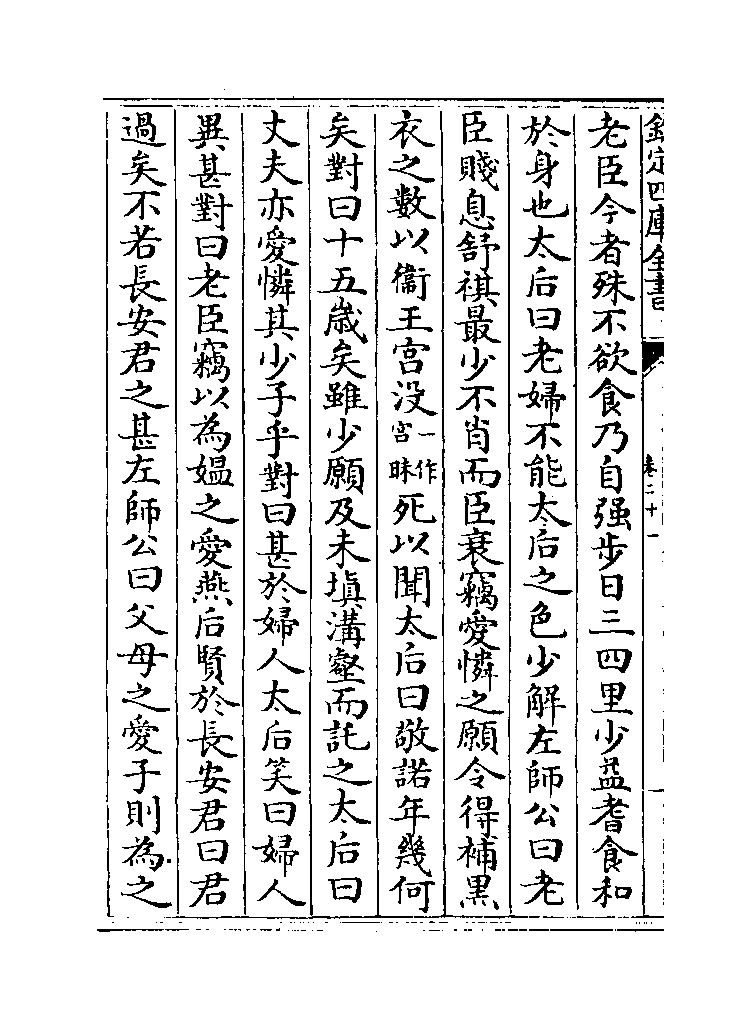 欽定四庫全書
卷二十一
老臣今者殊不欲食乃自强步日三四里少益耆食和
於身也太后曰老婦不能太后之色少解左師公曰老
臣賤息舒祺最少不肖而臣衰竊愛憐之願令得補黒
衣之數以衞王宫没一作宫昧死以聞太后曰敬諾年幾何
矣對曰十五歲矣雖少願及未塡溝壑而託之太后曰
丈夫亦愛憐其少子乎對曰甚於婦人太后笑曰婦人
異甚對曰老臣竊以為媪之愛燕后賢於長安君曰君
過矣不若長安君之甚左師公曰父母之愛子則為之